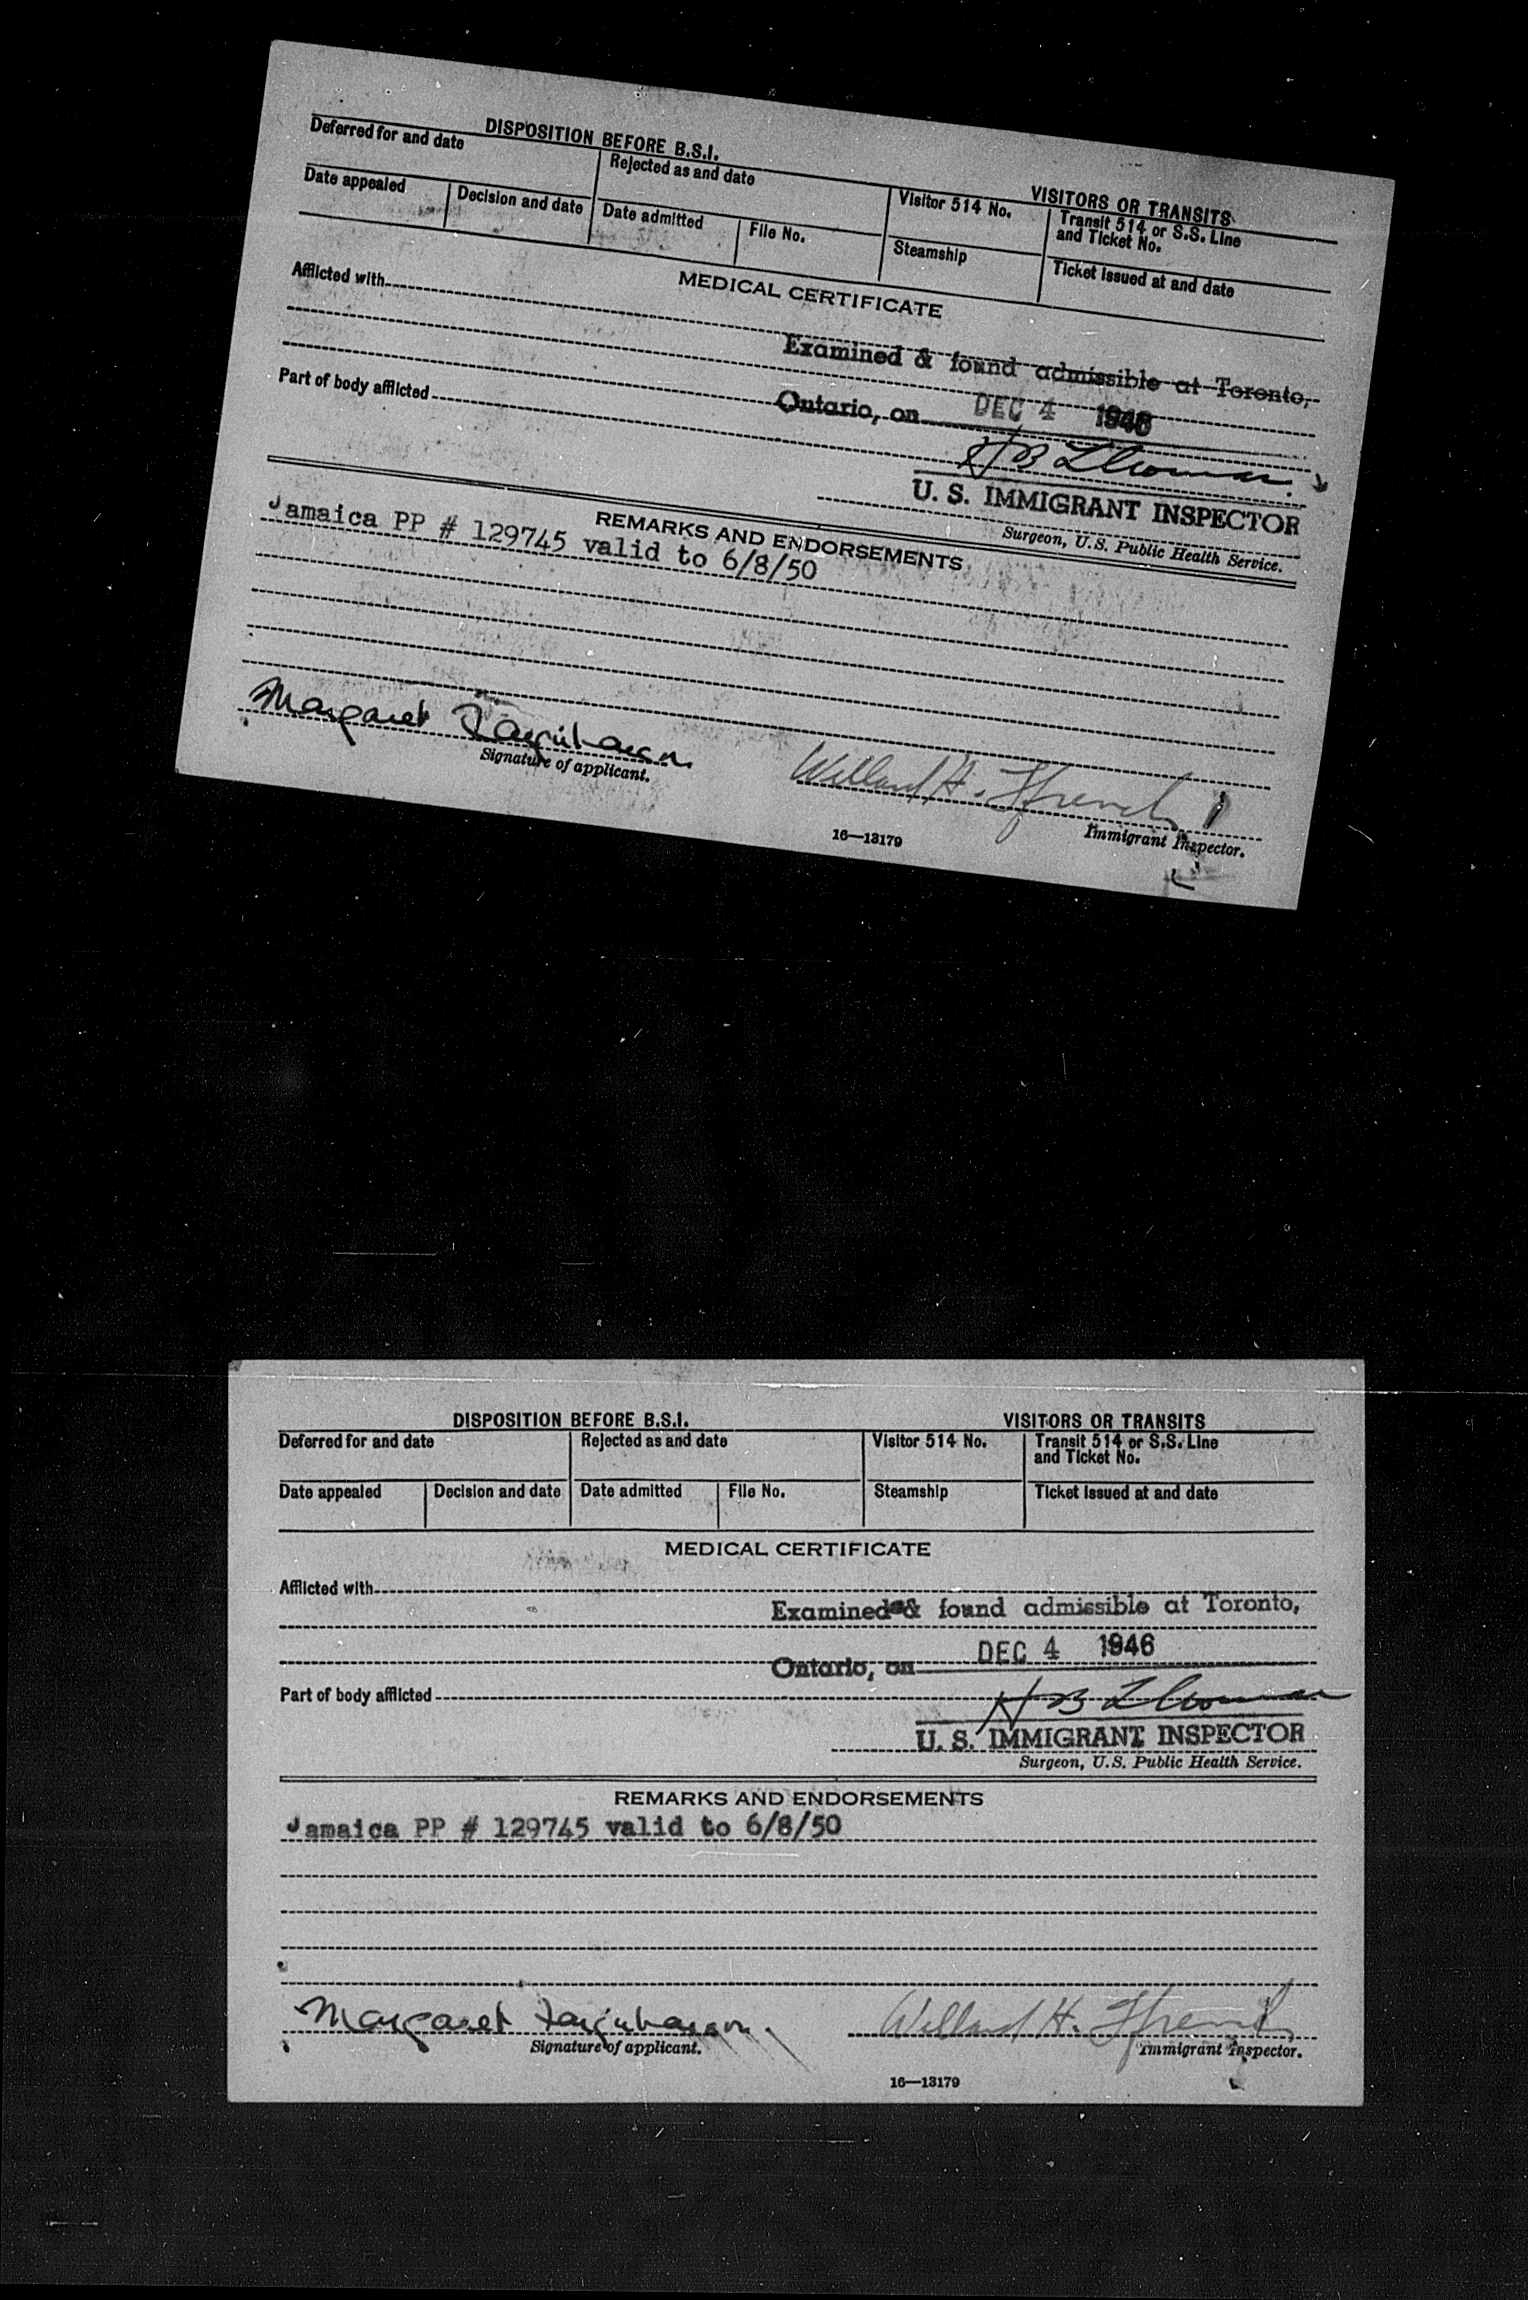 DISPOSITION BEFORE B.S.I.
VISITORS OR TRANSITS
Deferred for and date
Rejected as and date
Visitor 514 No.
Transit 514 or S.S. Line
and Ticket No.
Date appealed
Decision and date
Date admitted
File No.
Steamship
Ticket issued at and date
MEDICAL CERTIFICATE
Afflicted with
Examined & found admissible at Toronto,
Ontario, on DEC 4 1946
Part of body afflicted
H B
U. S. IMMIGRANT INSPECTOR
Surgeon, U.S. Public Health Service.
REMARKS AND ENDORSEMENTS
Jamaica PP # 129745 valid to 6/8/50
Margaret Farquharson
Willard H. Ffrench
Signature of applicant.
Immigrant Inspector.
16—13179
DISPOSITION BEFORE B.S.I.
VISITORS OR TRANSITS
Deferred for and date
Rejected as and date
Visitor 514 No.
Transit 514 or S.S. Line
and Ticket No.
Date appealed
Decision and date
Date admitted
File No.
Steamship
Ticket issued at and date
MEDICAL CERTIFICATE
Afflicted with
Examined & found admissible at Toronto,
Ontario, on DEC 4 1946
Part of body afflicted
H B
U. S. IMMIGRANT INSPECTOR
Surgeon, U.S. Public Health Service.
REMARKS AND ENDORSEMENTS
Jamaica PP # 129745 valid to 6/8/50
Margaret Farquharson.
Willard H. Ffrench
Signature of applicant.
Immigrant Inspector.
16—13179